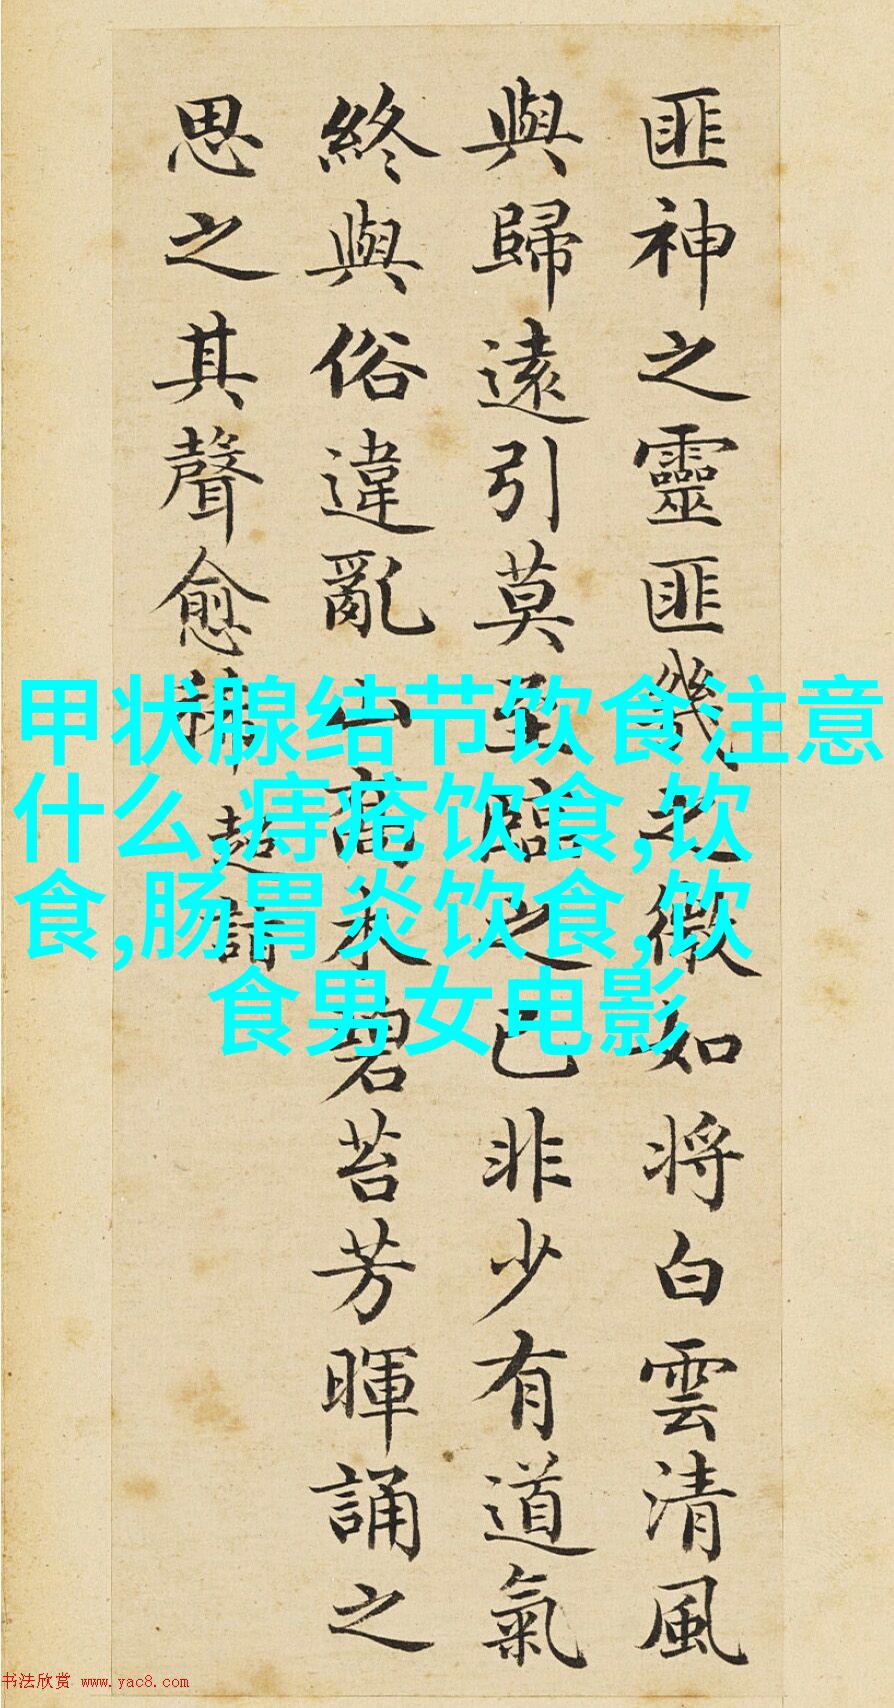 匪神之靈匪幾之微如將白雲清風
與歸遠引莫至臨之已非少有道氣
終與俗違亂山木碧苔芳暉誦之
思之其聲愈稀
超詣
甲状腺结节饮食注意
什么,痔疮饮食,饮
食,肠胃炎饮食,饮
食男女电影
书法欣赏 www.yac8.com